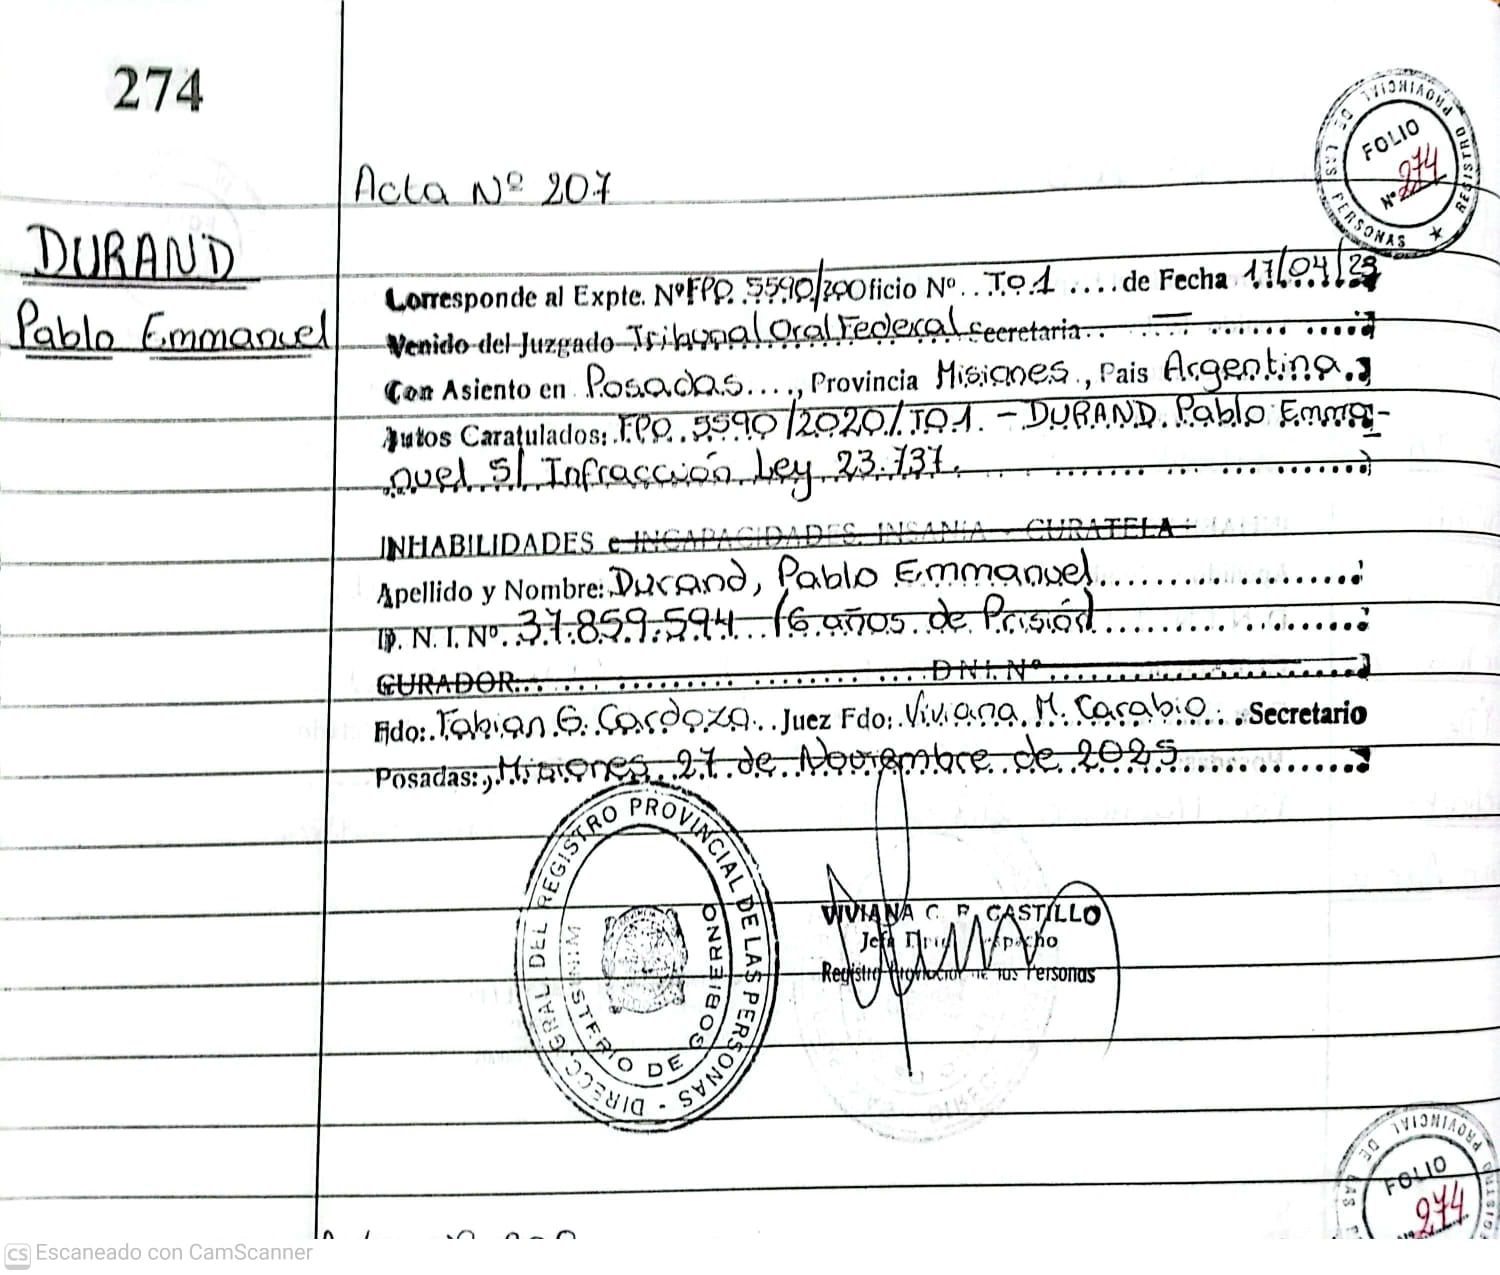 274
REGISTRO PROVINCIAL DE LAS PERSONAS
FOLIO
Nº 274
Acta Nº 207
DURAND
Pablo Emmanuel
Corresponde al Expte. Nº FPO. 5590/ Oficio Nº.. TO1 .... de Fecha 17/04/23
Venido del Juzgado Tribunal Oral Federal Secretaria.. — ......
Con Asiento en Posadas...., Provincia Misiones., Pais Argentina.
Autos Caratulados: FPO. 5590/2020/TO1. - DURAND. Pablo Emma-
nuel S/ Infracción Ley 23.737.
INHABILIDADES e INCAPACIDADES. INSANIA - CURATELA
Apellido y Nombre: Durand, Pablo Emmanuel
D. N. I. Nº. 37.859.594 (6 años de Prisión)
CURADOR DNI. Nº
Fdo: Fabian G. Cardoza.. Juez Fdo: Viviana M. Carabio... Secretario
Posadas:, Misiones, 27 de Noviembre de 2025
DIRECC. GRAL. DEL REGISTRO PROVINCIAL DE LAS PERSONAS -
MINISTERIO DE GOBIERNO
VIVIANA C. R. CASTILLO
Registro Provincial de las Personas
PROVINCIAL DE LAS
FOLIO
274
CS Escaneado con CamScanner